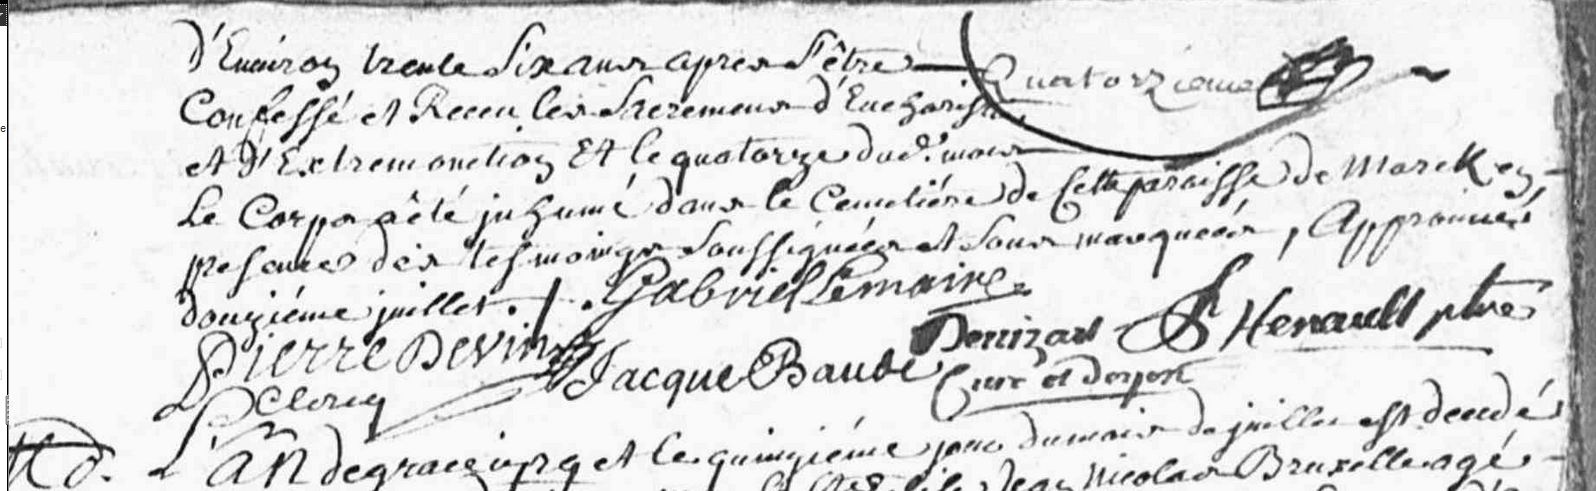 d'Environ trente Six ans apres S'être Quatorzieme
Confessé et Receu les Sacremens d'Eucharistie
et d'Extremonction Et le quatorze dud. mois
Le Corps a été inhumé dans le Cemetiére de Cette paroisse de Marck en
presence des tesmoings Soussignées et Sous marqueés, Approuvé
douziéme juillet. Gabriel Lemaire
Pierre Devin Jacque Baude Denizart Sr Henault ptre
Clercq Curé et doyen
L'AN de grace et le quinziéme jour du mois de juillet est decedé
Jean Nicolas Bruxelle agé